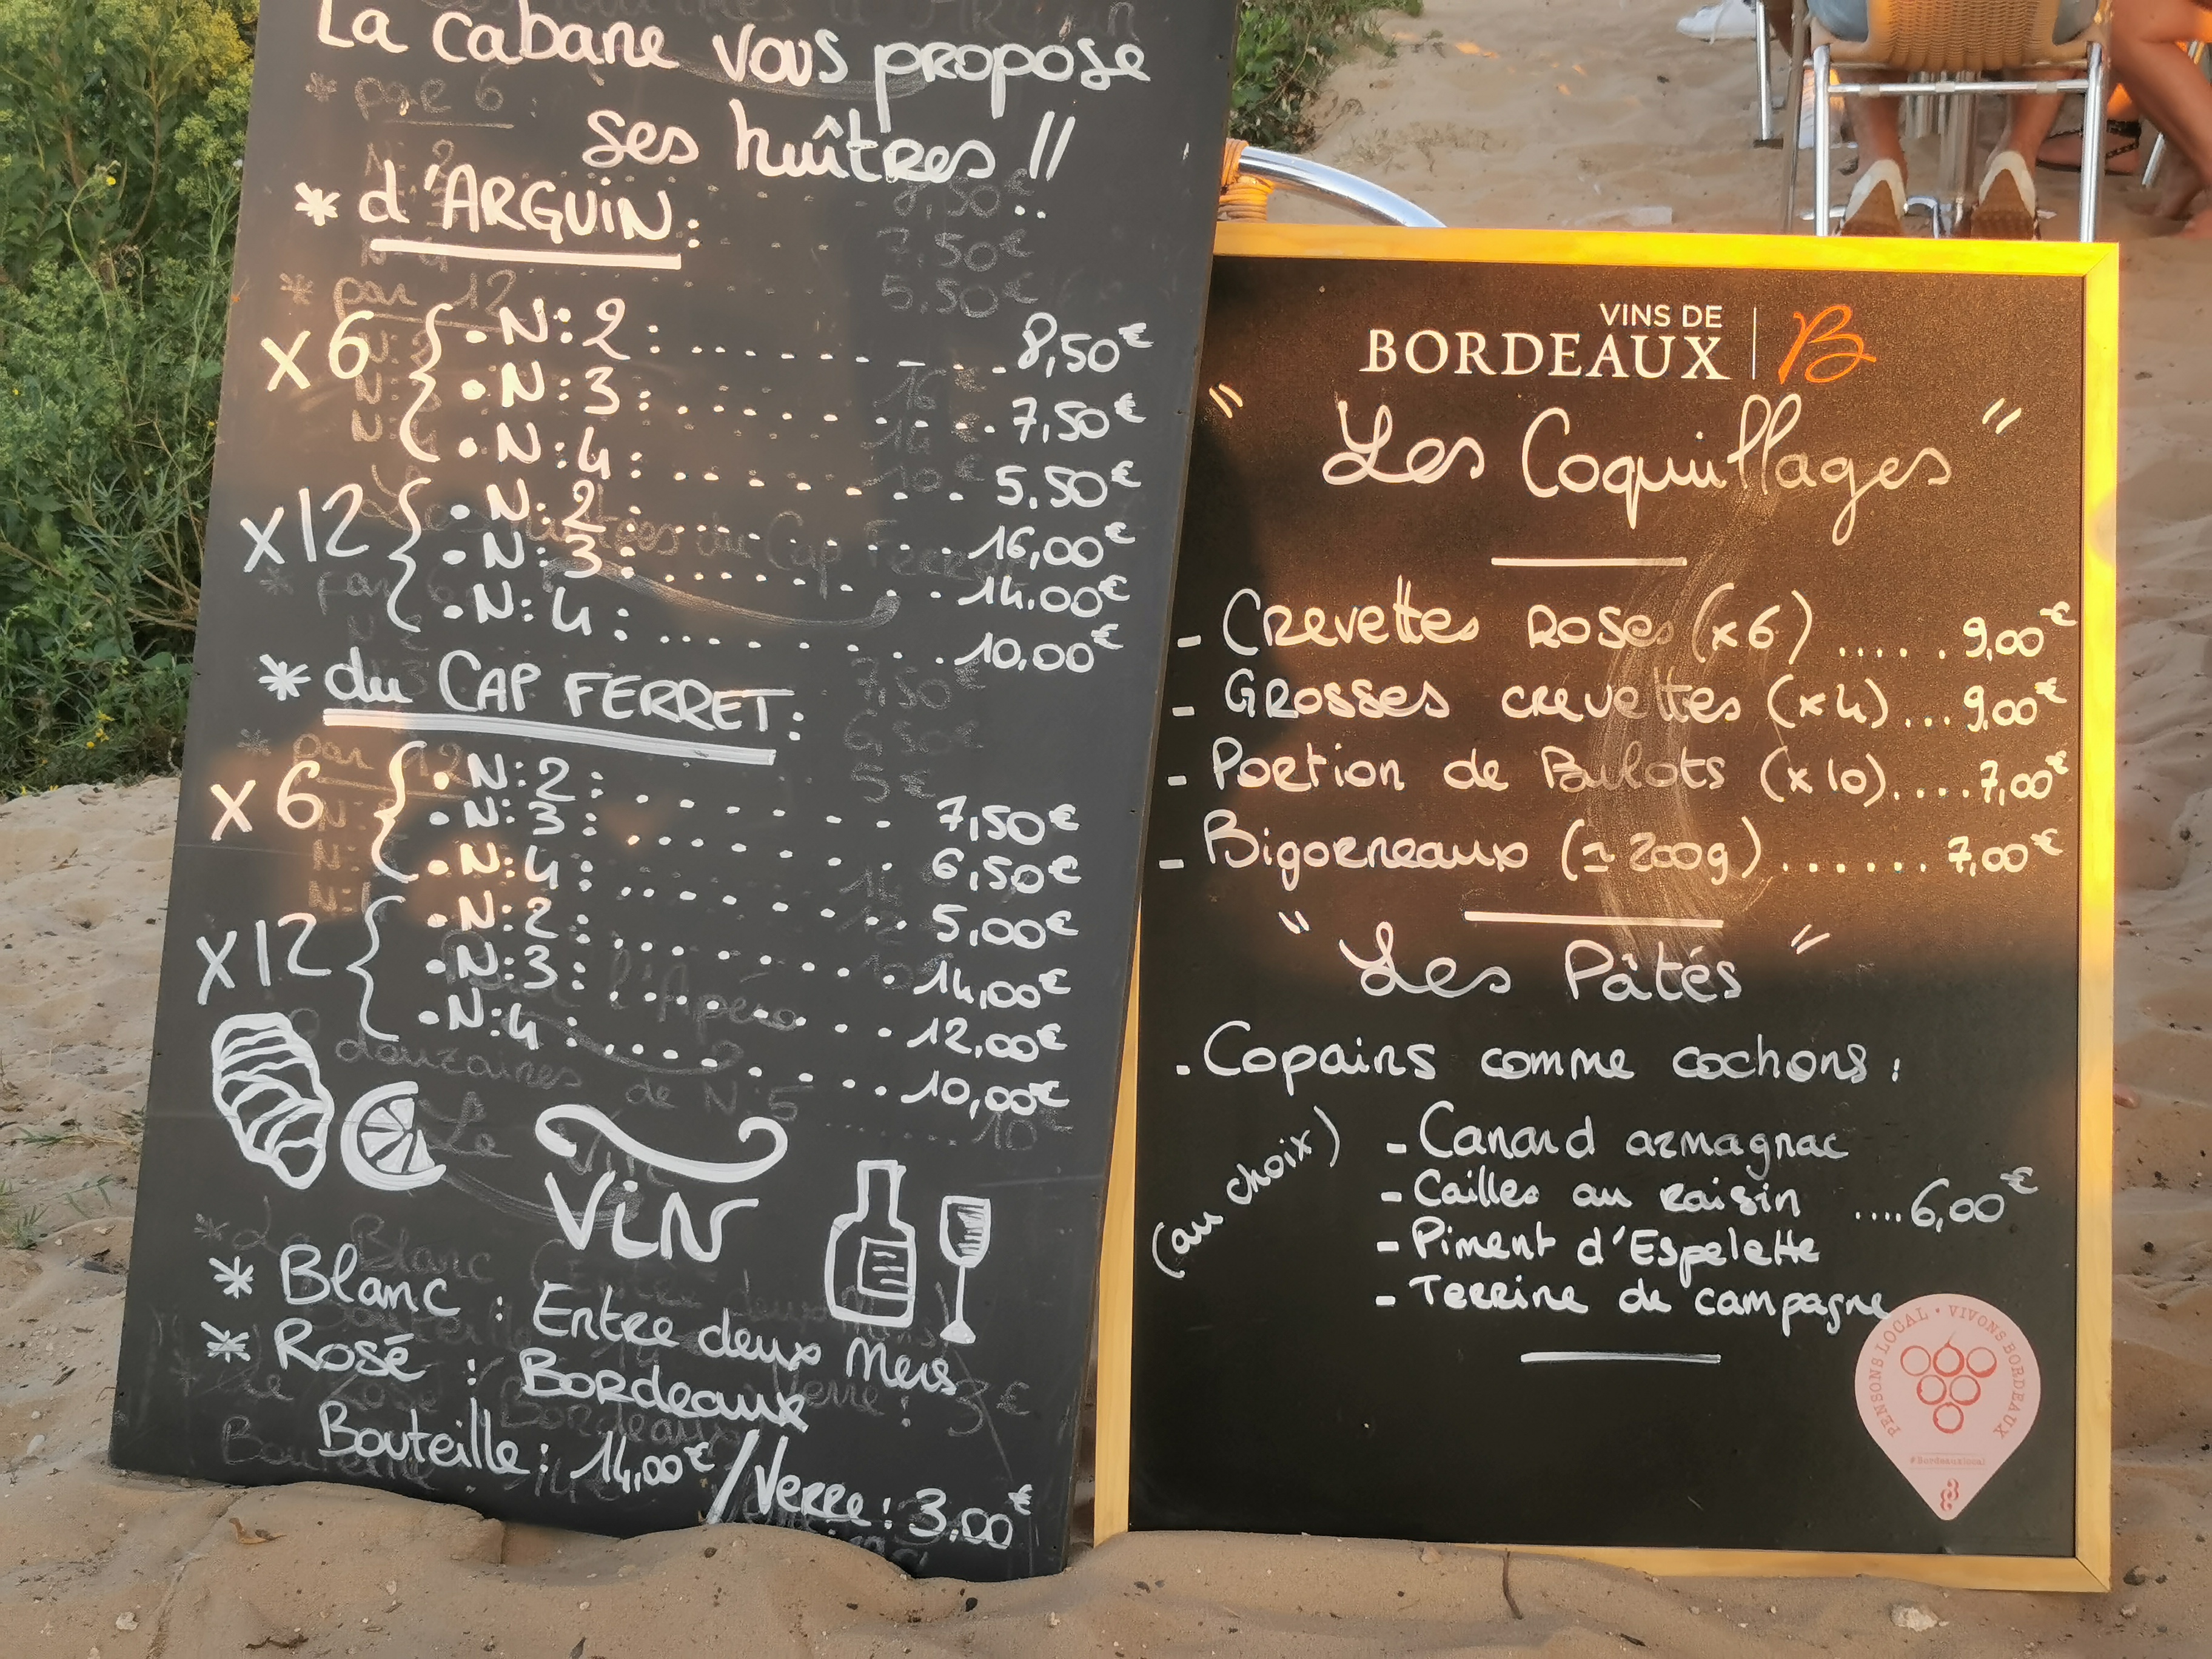 La cabane vous propose
ses huîtres !!
* d'ARGUIN :
x6 { • N: 2 : ........... 8,50€
• N: 3 : ........... 7,50€
• N: 4 : ........... 5,50€
x12 { • N: 2 : ........... 16,00€
• N: 3 : ........... 14,00€
• N: 4 : ........... 10,00€
* du CAP FERRET :
x6 { • N: 2 : ........... 7,50€
• N: 3 : ........... 6,50€
• N: 4 : ........... 5,00€
x12 { • N: 2 : ........... 14,00€
• N: 3 : ........... 12,00€
• N: 4 : ........... 10,00€
ViN
* Blanc : Entre deux Mers
* Rosé : Bordeaux
Bouteille : 14,00€ / Verre : 3,00€
VINS DE
BORDEAUX | B
" Les Coquillages "
- Crevettes Roses (x6) ..... 9,00€
- Grosses crevettes (x4) ... 9,00€
- Portion de Bulots (x10) .... 7,00€
- Bigorneaux (± 200g) ...... 7,00€
" Les Pâtés "
. Copains comme cochons :
(au choix)
- Canard armagnac
- Cailles au raisin .... 6,00€
- Piment d'Espelette
- Terrine de campagne
PENSONS LOCAL • VIVONS BORDEAUX
#Bordeauxlocal